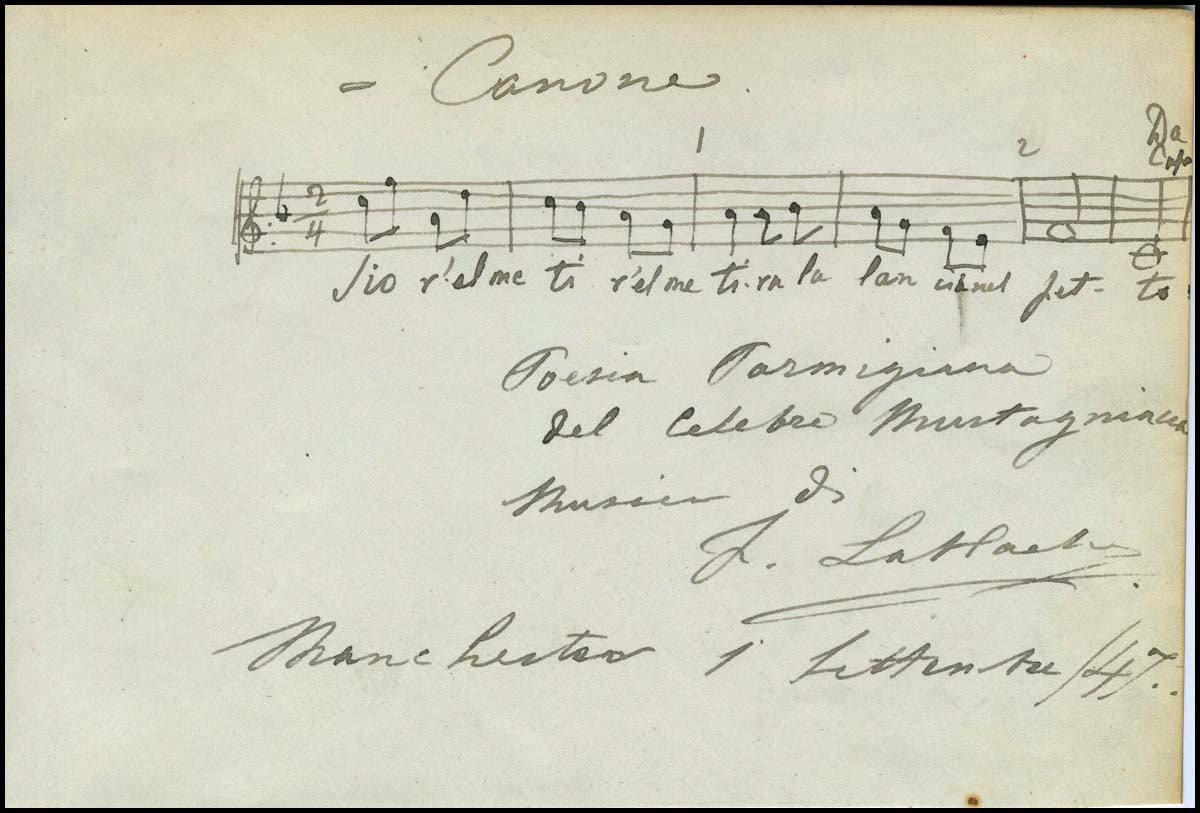 = Canone.
1 2 Da Capo
2
4
Sio r'el me ti r'el me ti-ra la lan cia nel pet- to!
Poesia Parmigiana
del Celebre
Musica di
F. Lablache
Manchester 1 Settembre /47.